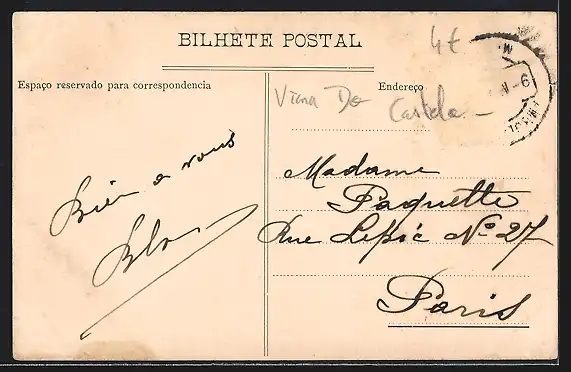 BILHETE POSTAL
4€
Espaço reservado para correspondencia
Endereço
Viana Do Castelo
Bien a vous
Madame
Paquette
Rue Lepic Nº 27
Paris